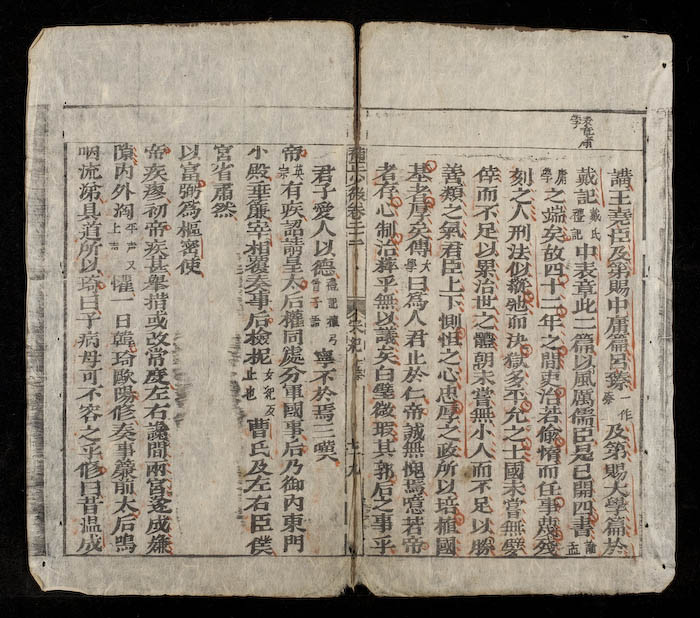 表章庸學
講王堯臣及第賜中庸篇呂臻一作溱及第賜大學篇於
戴記戴氏禮記中表章此二篇以風厲儒臣是已開四書論孟
庸學之端矣故四十二年之間吏治若偷惰而任事蔑殘
刻之人刑法似縱弛而決獄多平允之士國未嘗無嬖
倖而不足以累治世之體朝未嘗無小人而不足以勝
善類之氣君臣上下惻怛之心忠厚之政所以培植國
基者厚矣傳大學曰為人君止於仁帝誠無愧焉噫若帝
者存心制治粹乎無以議矣白璧微瑕其郭后之事乎
卷之二十 宋紀 十九
君子愛人以德禮記檀弓曾子語寧不於焉三嘆
帝英宗有疾詔請皇太后權同處分軍國事后乃御內東門
小殿垂簾宰相覆奏事后檢柅女紀反止也曹氏及左右臣僕
宮省肅然
以富弼為樞密使
帝疾瘳初帝疾甚舉措或改常度左右讒間兩宮遂成嫌
隙內外洶平声又上声懼一日韓琦歐陽修奏事簾前太后嗚
咽流涕具道所以琦曰子病母可不容之乎修曰昔溫成